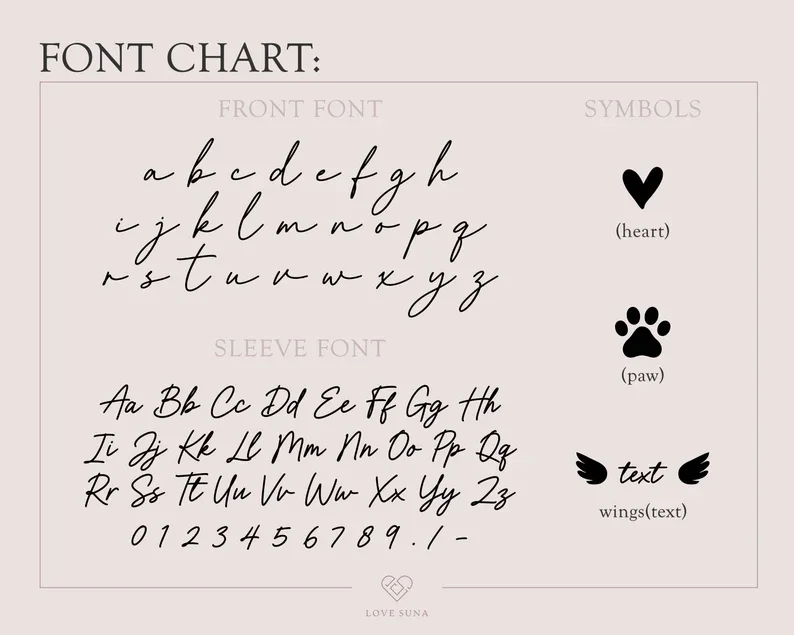 FONT CHART:
FRONT FONT
a b c d e f g h
i j k l m n o p q
r s t u v w x y z
SLEEVE FONT
Aa Bb Cc Dd Ee Ff Gg Hh
Ii Jj Kk Ll Mm Nn Oo Pp Qq
Rr Ss Tt Uu Vv Ww Xx Yy Zz
0 1 2 3 4 5 6 7 8 9 . / -
SYMBOLS
(heart)
(paw)
text
wings(text)
LOVE SUNA